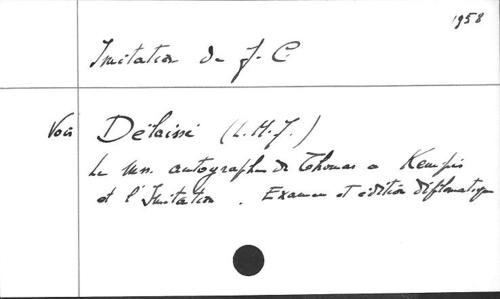 1958
Imitation de J. C.
Voir Délaissé (L. H. J.)
Le Mss. autographe de Thomas a Kempis
et l'Imitation. Examen et édition diplomatique